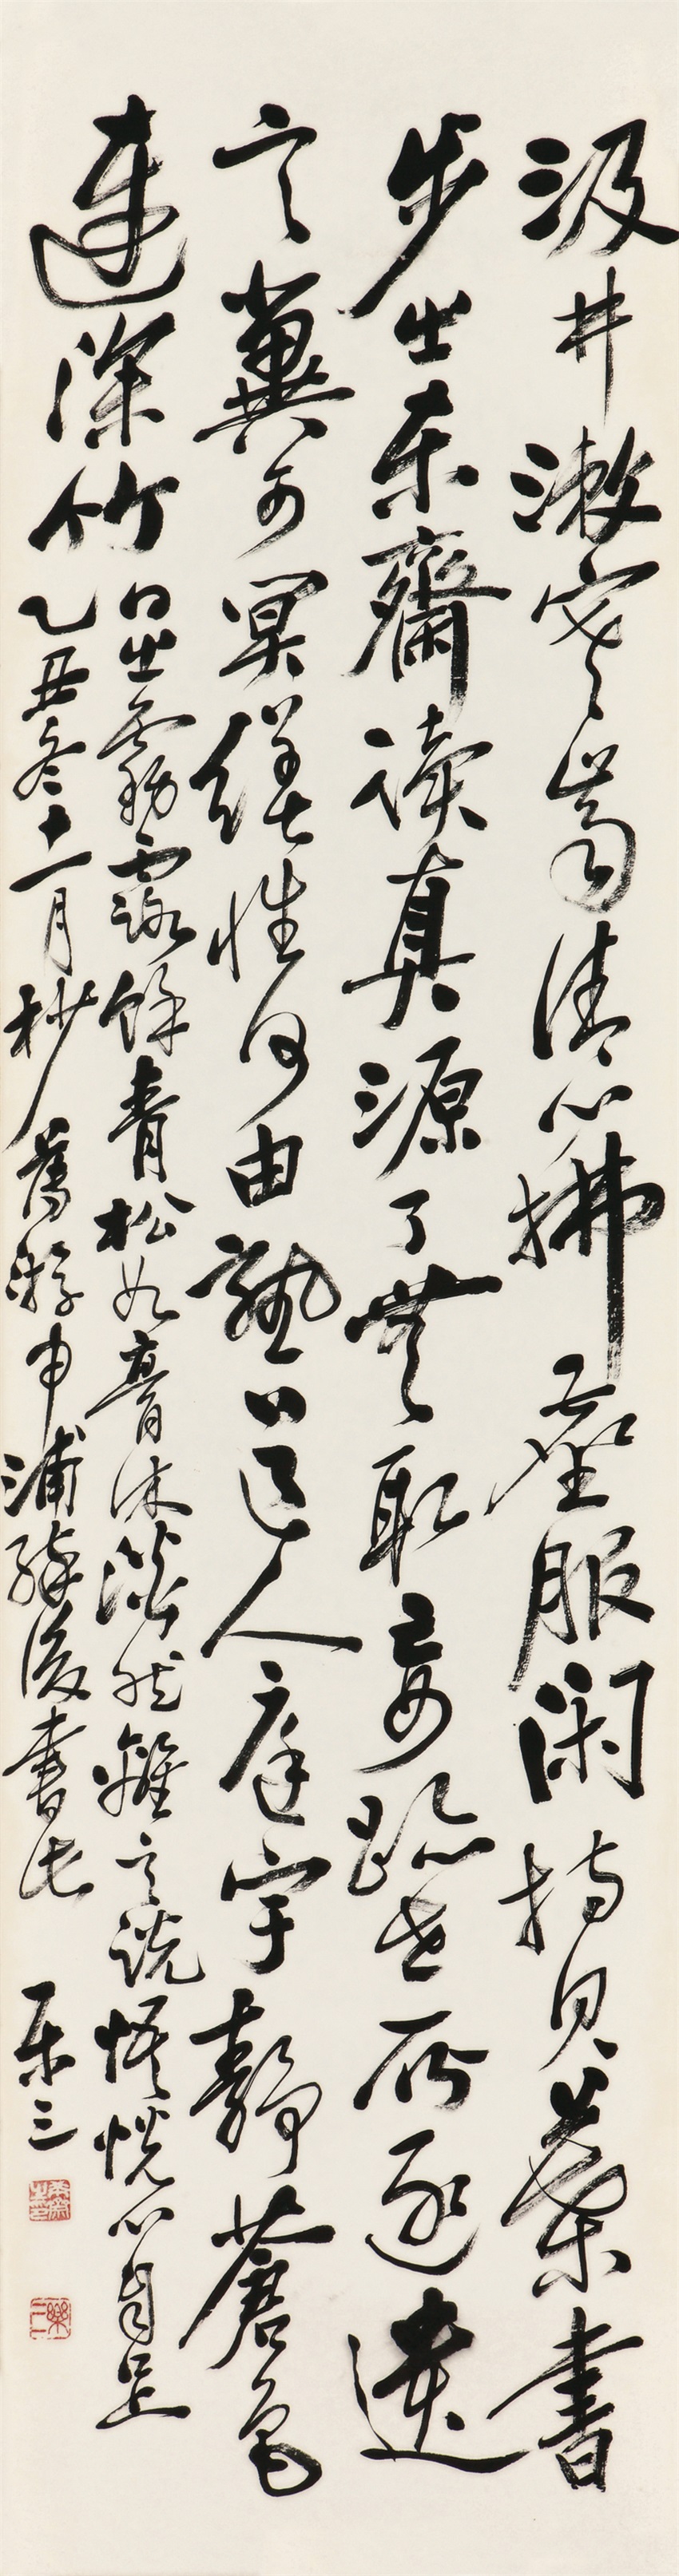 汲井漱寒齒清心拂塵服闲持貝葉書
步出東齋讀真源了無取妄跡世所逐遺
言冀可冥繕性何由熟道人庭宇静蒼色
連深竹日出霧露餘青松如膏沐澹然離言説悟悦心自足
乙丑冬十一月杪舊游申浦後書